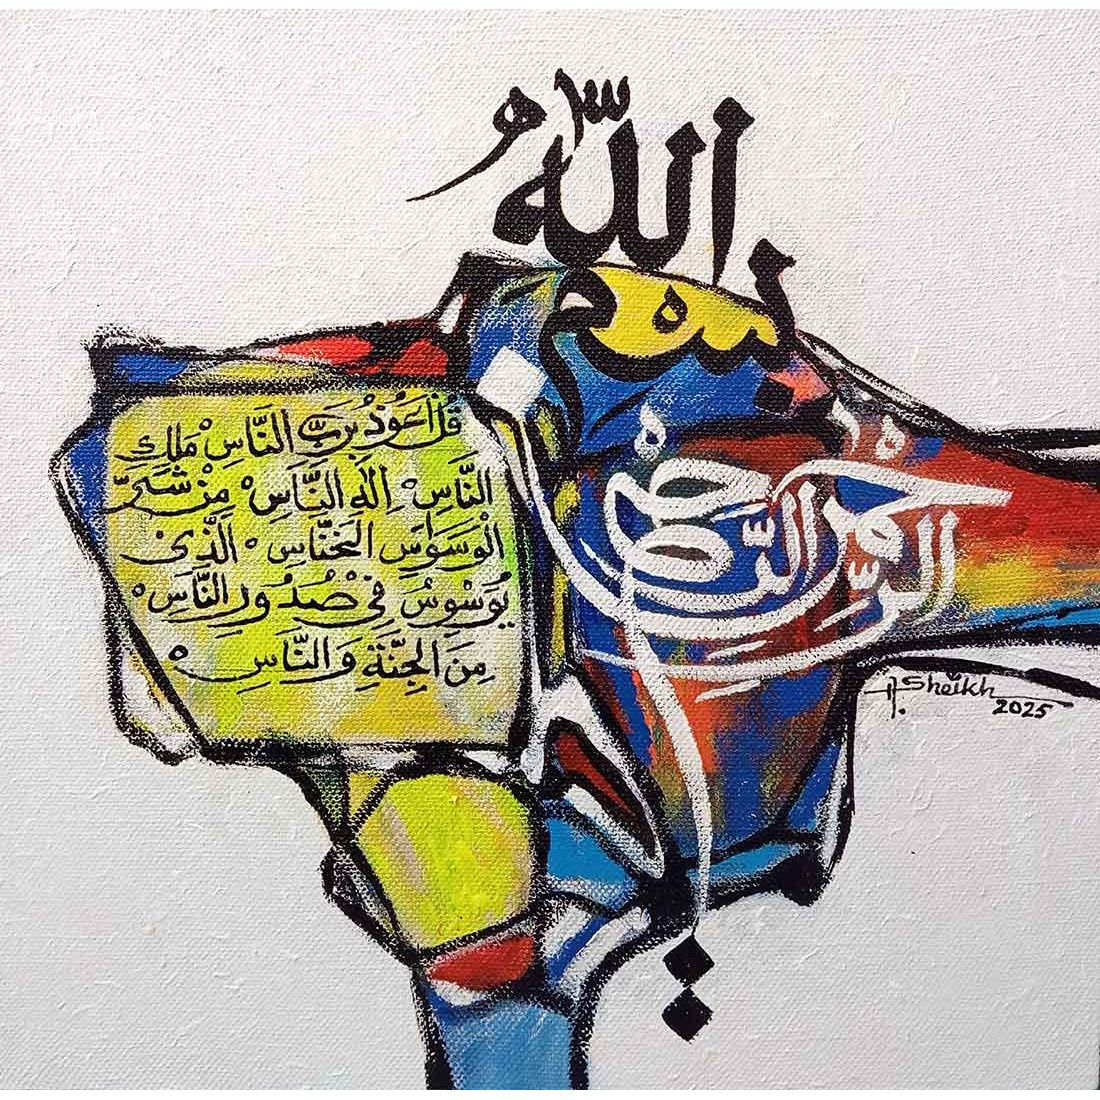 بسم الله
الرحمن الرحيم
قُلْ اَعُوْذُ بِرَبِّ النَّاسِ ْ مَلِكِ
النَّاسِ ْ اِلٰهِ النَّاسِ ْ مِنْ شَرِّ
الْوَسْوَاسِ الْخَنَّاسِ ْ الَّذِيْ
يُوَسْوِسُ فِيْ صُدُوْرِ النَّاسِ ْ
مِنَ الْجِنَّةِ وَ النَّاسِ ه
A. Sheikh
2025